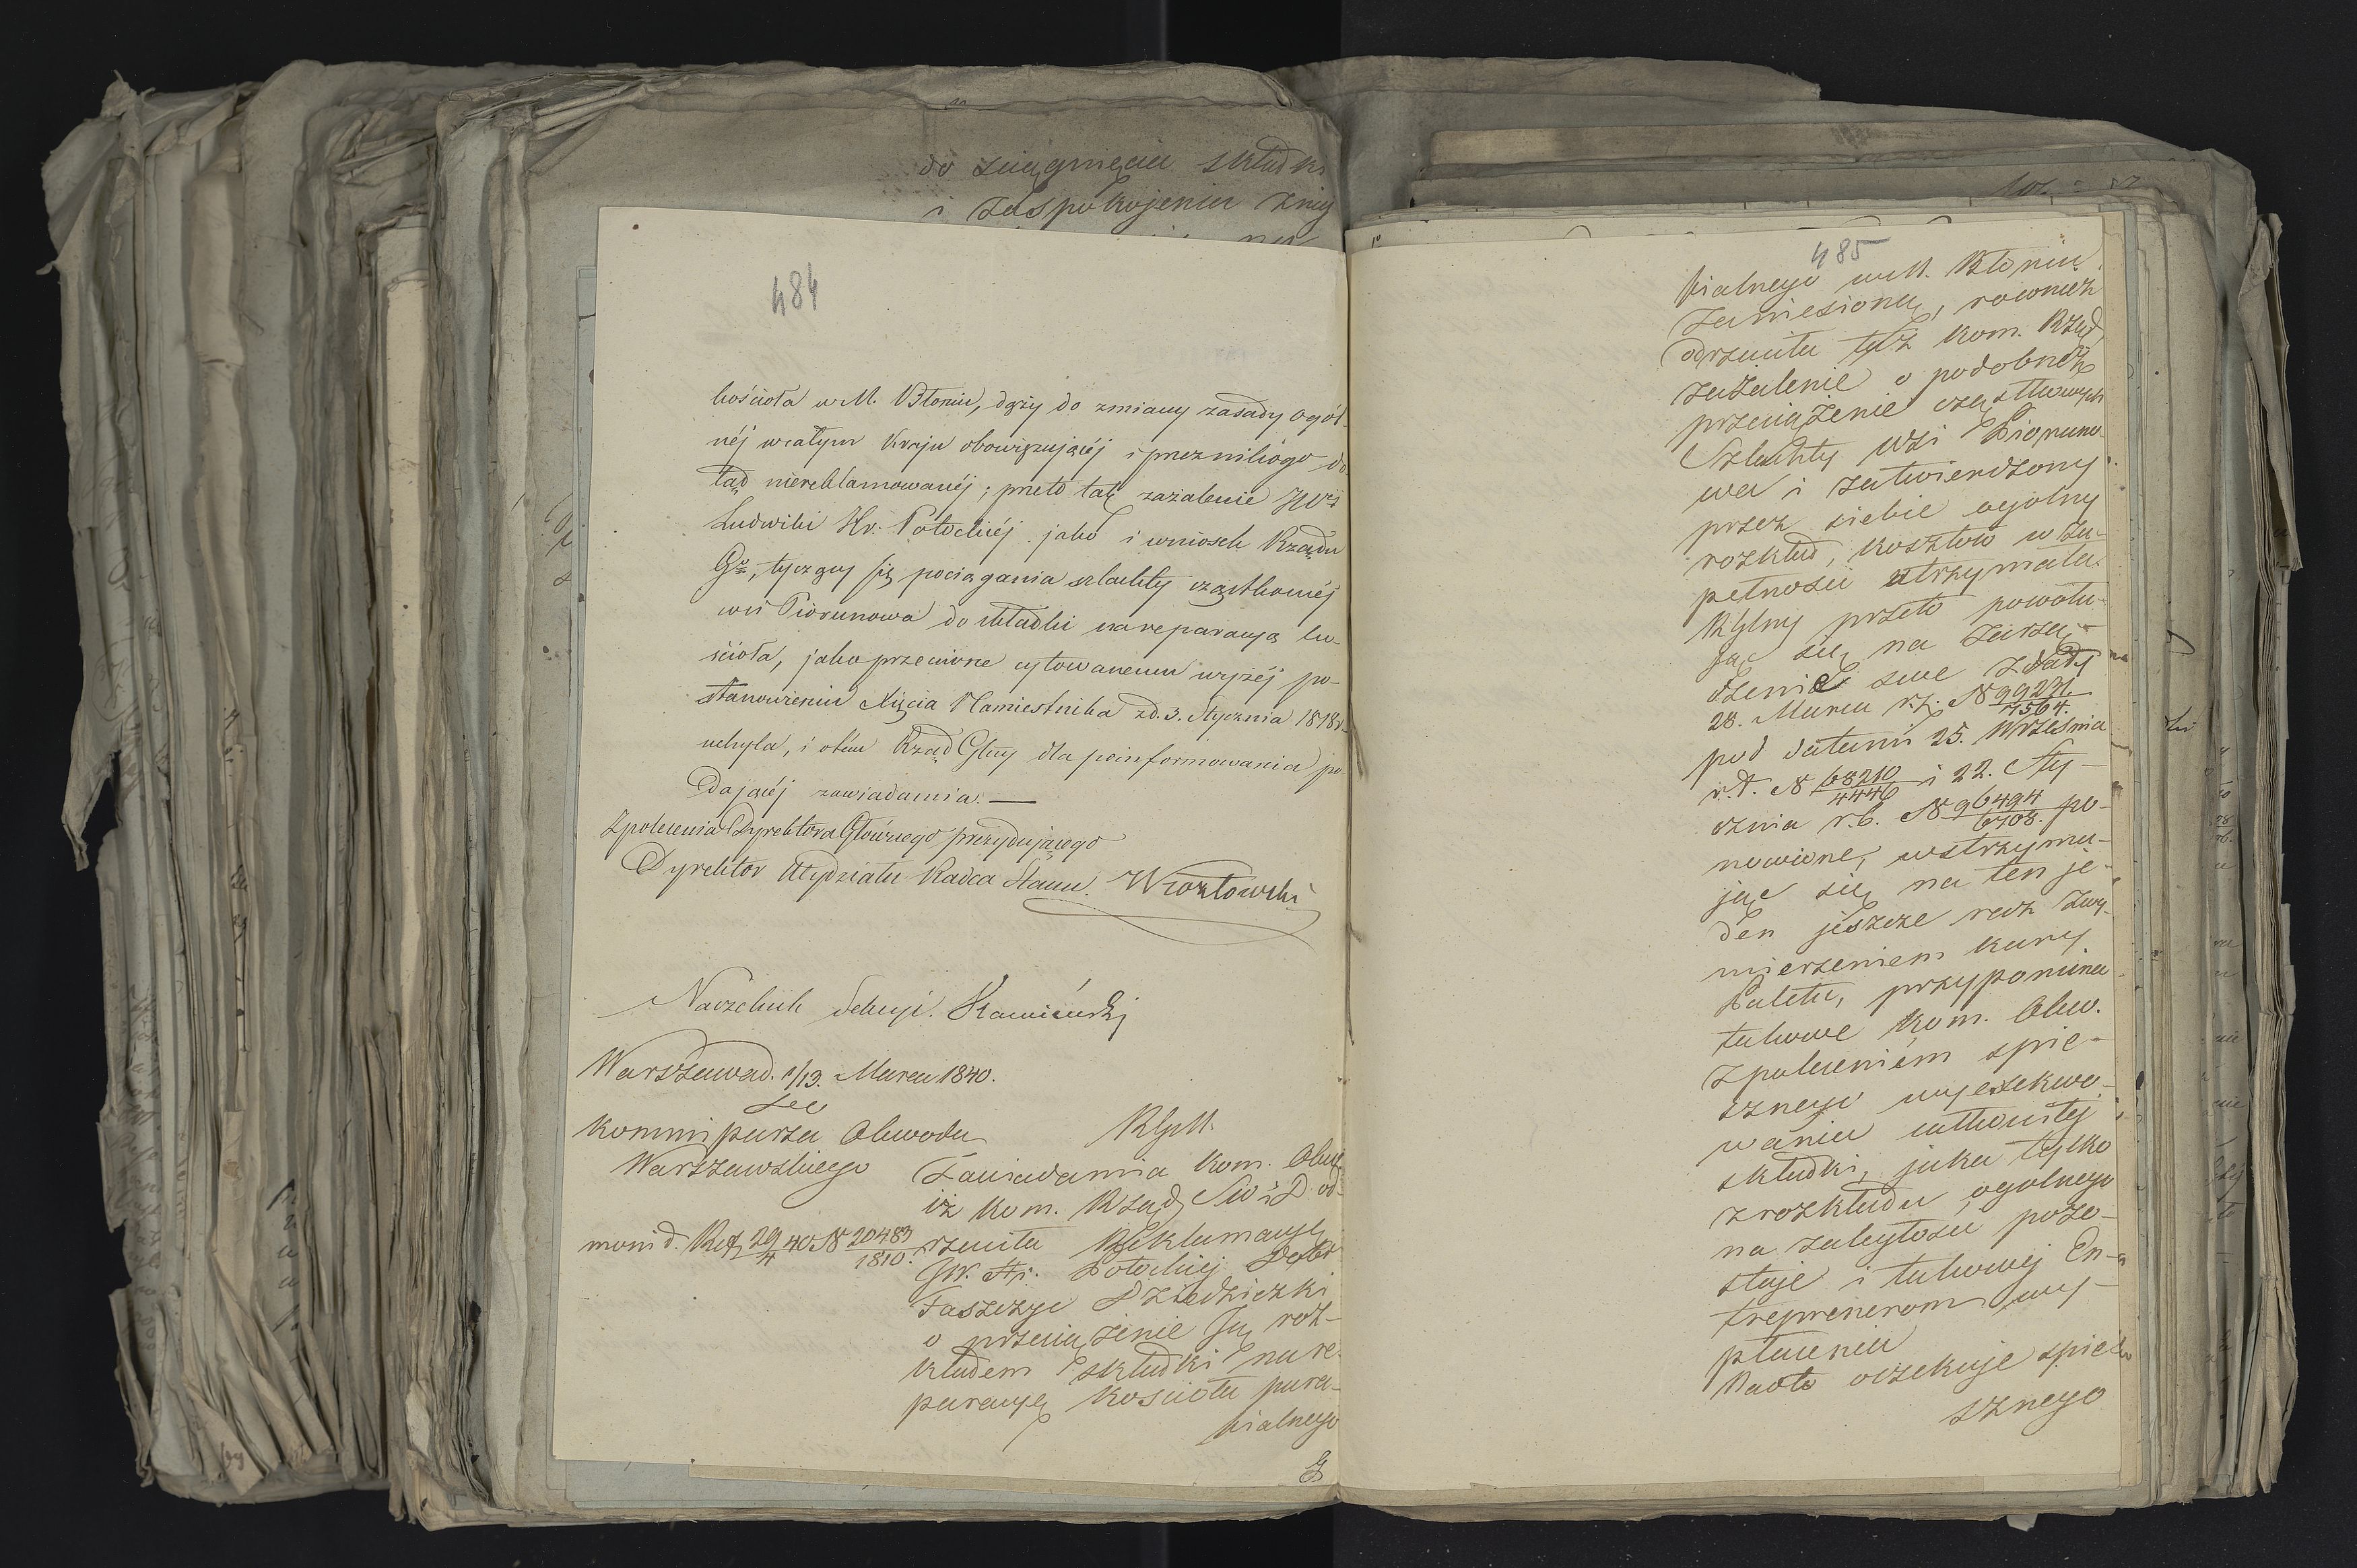 do zciągnięcia składki
i zaspokojenia z niej
484
kościoła w M. Błoniu, dąży do zmiany zasady ogól-
néj w całym Kraju obowiązującéj i przez nikogo do
tąd niereklamowanéj; przeto tak zażalenie JWéj
Ludwiki Hr. Potockiéj jako i wniosek Rządu
Go, tyczący się pociągania szlachty cząstkowéj
wsi Piorunowa do składki na reparacyą ko-
ścioła, jako przeciwne cytowanemu wyżéj po-
stanowieniu Xięcia Namiestnika z d. 3. Stycznia 1818 r.
uchyla, i o tém Rząd Glny dla poinformowania po-
dającéj zawiadamia. —
Z polecenia Dyrektora Głównego prezydującego
Dyrektor Wydziału Radca Stanu.
Naczelnik Sekcyi. Kamiński
Warszawa d. 1/13. Marca 1840.
Do
Kommissarza Obwodu
Warszawskiego
mon: d. 29/4 40 N 20483/1810.
RGM.
Zawiadamia Kom. Obw.
iż Kom. Rządz. SW i D od-
rzuciła Reklamacyę
JW. Hr. Potockiej Dóbr
Faszczyc Dziedziczki
o przeciążenie Ją roz-
kładem składki na re-
paracyę Kościoła para-
fialnego
485
fialnego w M. Błoniu
zaniesioną, również
odrzuciła też Kom. Rząd.
zażalenie o podobneż
przeciążenie cząstkowych
Szlachty Wsi Pioruno-
wa i zatwierdzony
przez siebie ogólny
rozkład, kosztów w zu-
pełności utrzymała.
R Glny przeto powołu-
jąc się na zarzą-
dzenia swe z daty
28. Marca r. z. N 99271/7564.
pod datami 25. Września
r. t. N 68210/4446 i 22. Sty-
cznia r. b. N 96494/6708. po-
nowione, wstrzymu-
jąc się na ten je-
den jeszcze raz z wy-
mierzeniem kary
Paletu, przypomina
takowe Kom. Obw.
z poleceniem spie-
sznego wyexekwo-
wania całkowitej
składki, jaka tylko
z rozkładu ogólnego
na zaległości pozo-
staje i takowej En-
treprenerom wy-
płacenia
Raptu oczekuje spie-
sznego